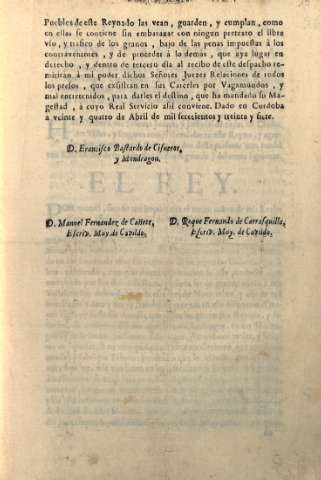 Pueblos de este Reynado las vean, guarden, y cumplan, como
en ellas se contiene sin embarazar con ningun pretexto el libre
vso, y trafico de los granos, bajo de las penas impuestas à los
contravenientes, y de proceder à lo demàs, que aya lugar en
derecho, y dentro de tercero dia al recibo de este despacho re-
mitiràn à mi poder dichos Señores Juezes Relaciones de todos
los presos, que existan en sus Carceles por Vagamundos, y
mal entretenidos, para darles el destino, que ha mandado su Ma-
gestad, à cuyo Real Servicio assi conviene. Dado en Cordoba
à veinte y quatro de Abril de mil setecientos y treinta y siete.
D. Francisco Bastardo de Cisneros,
y Mondragon.
EL REY.
D. Manuel Fernandez de Cañete,
Escriv. May. de Cavildo.
D. Roque Fernando de Carrasquilla,
Escriv. May. de Cavildo.